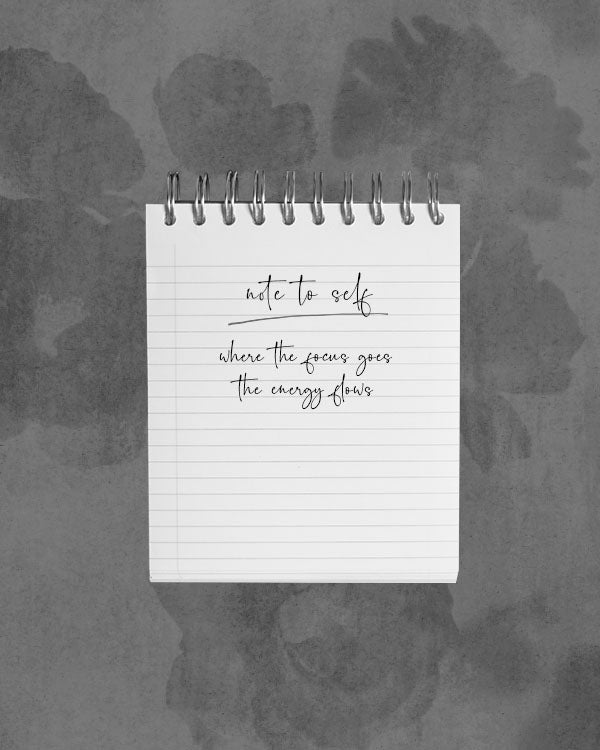 note to self
where the focus goes
the energy flows